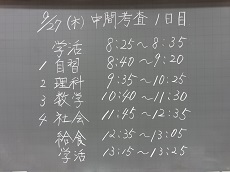 9/27(木)中間考査 1日目
学活 8:25〜8:35
1 自習 8:40〜9:20
2 理科 9:35〜10:25
3 数学 10:40〜11:30
4 社会 11:45〜12:35
給食 12:35〜13:05
学活 13:15〜13:25